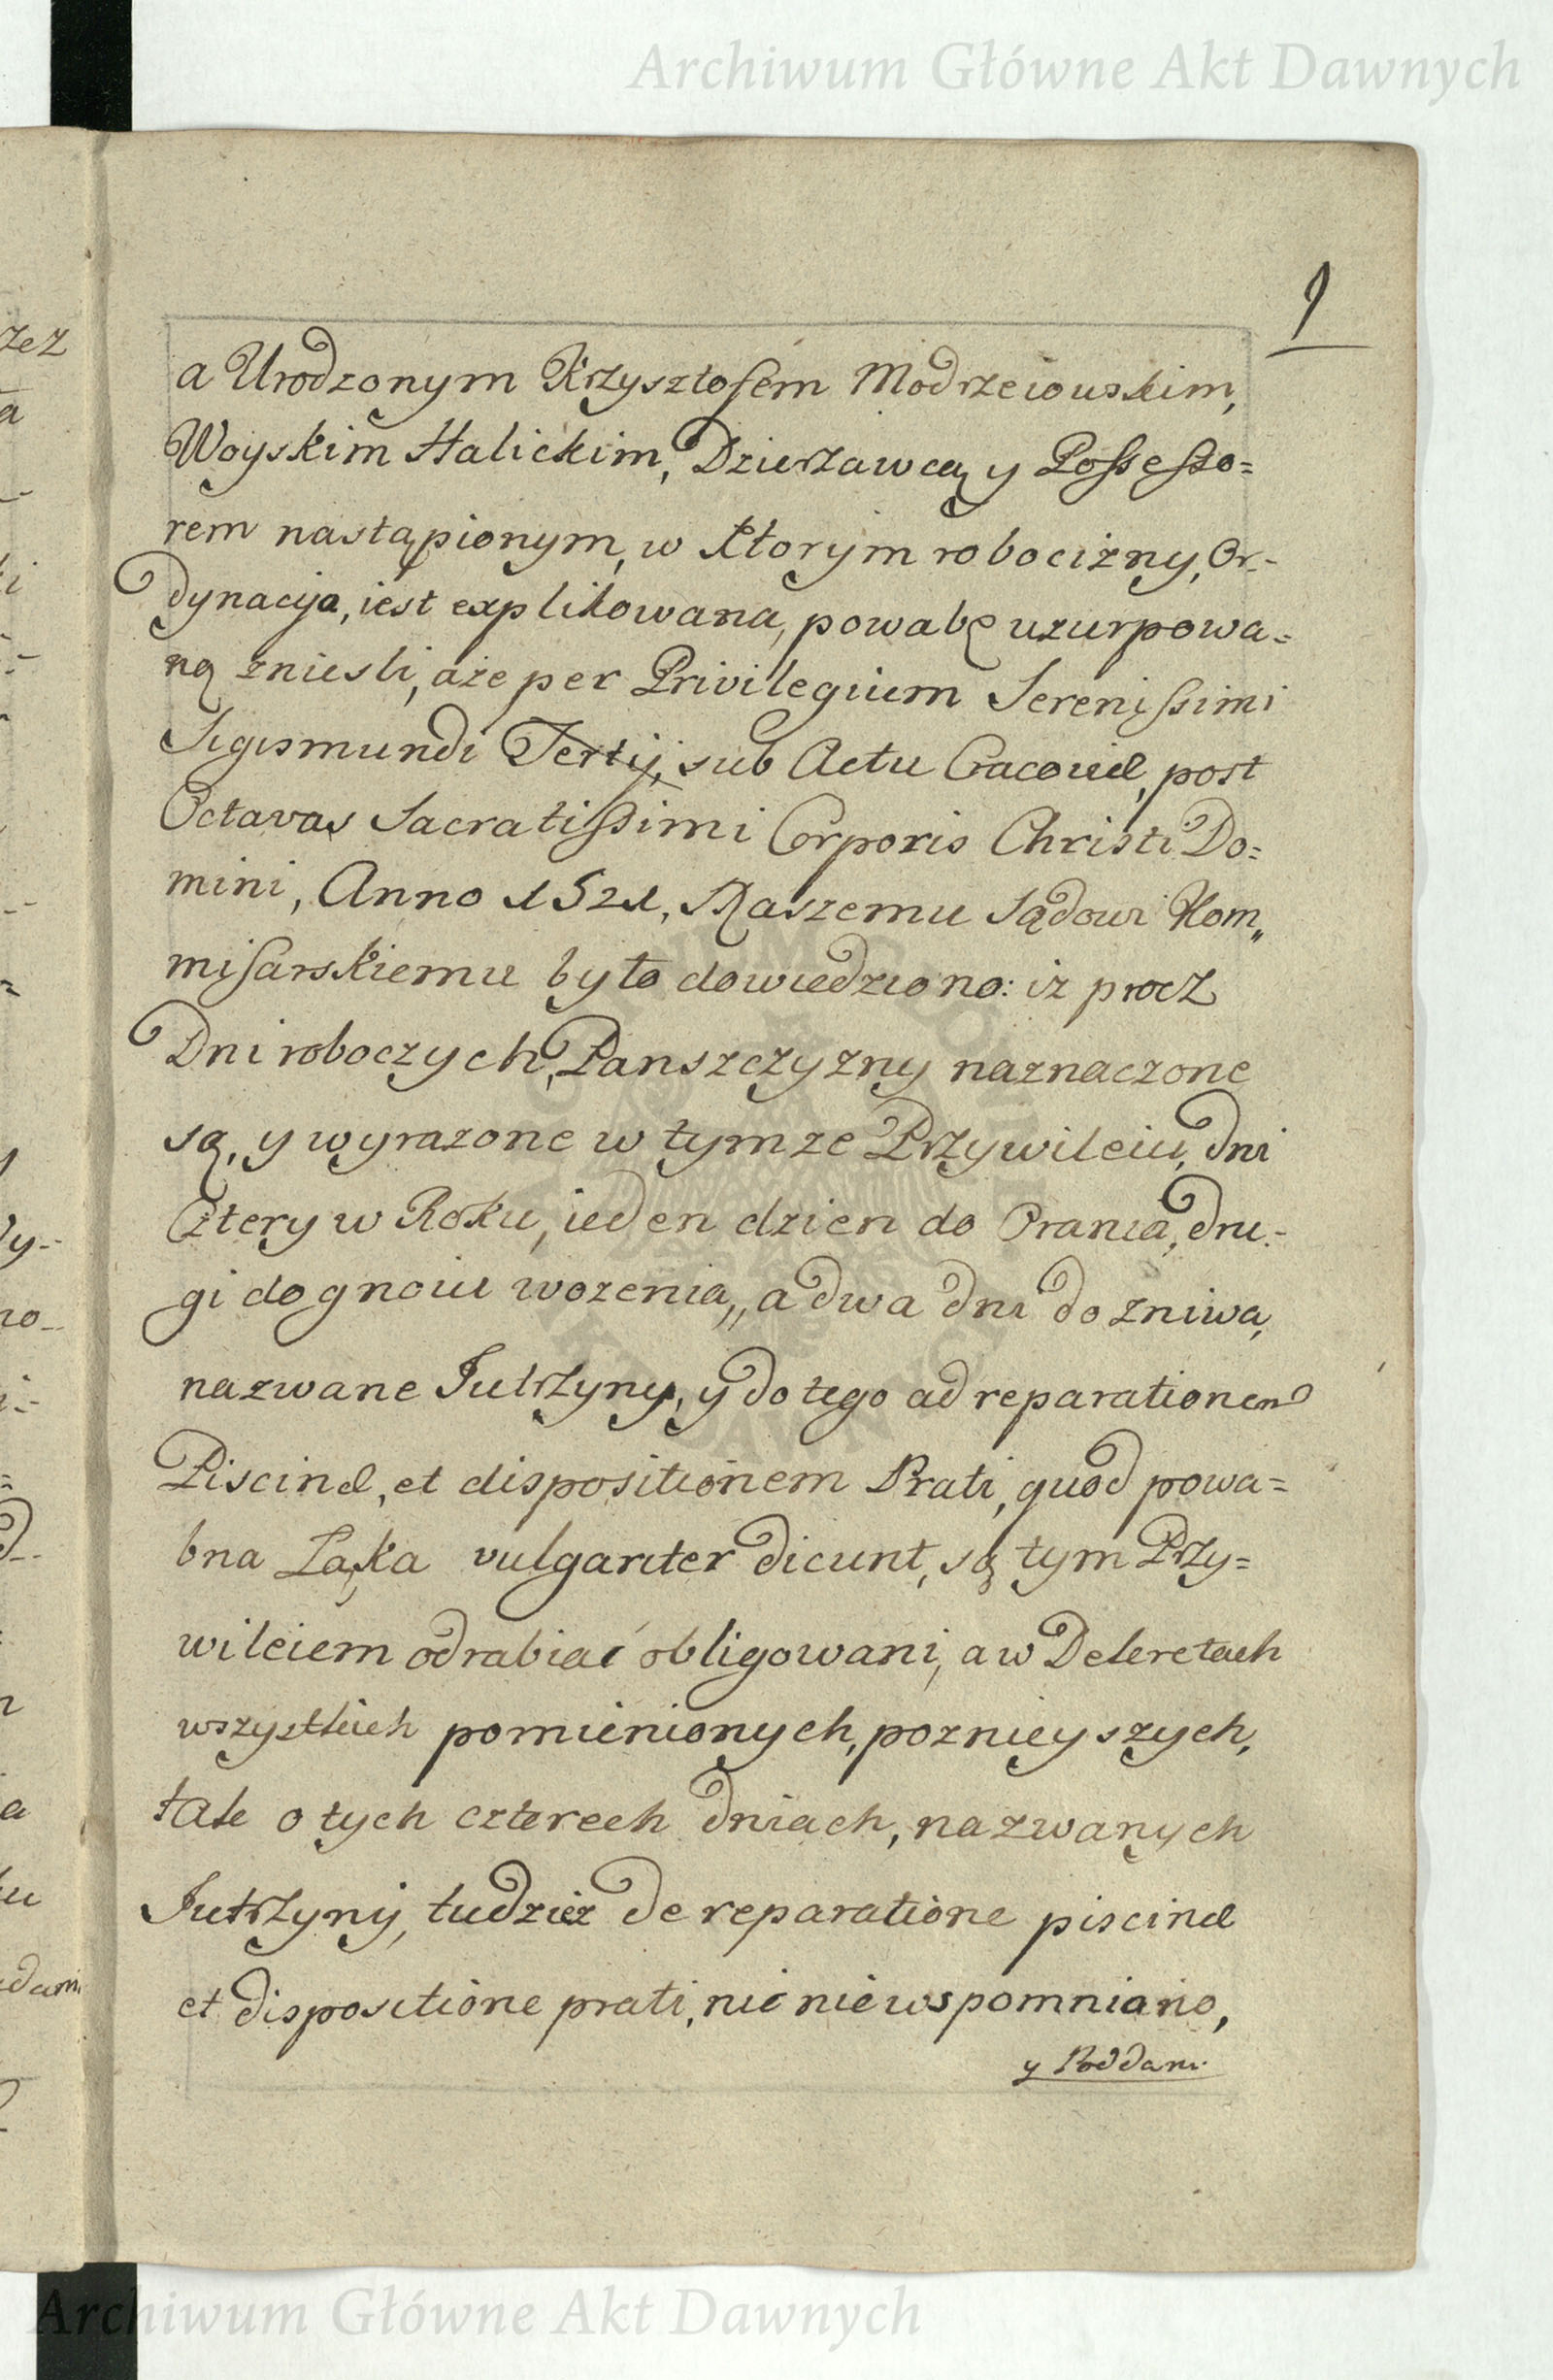 Archiwum Główne Akt Dawnych
9
a Urodzonym Krzysztofem Modrzeiowskim,
Woyskim Halickim, Dzierżawcą y Possesso=
rem nastąpionym, w ktorym robocizny, Or-
dynacyja, iest explikowana, powabę uzurpowa=
ną znieśli, aże per Privilegium Serenissimi
Sigismundi Tertij, sub Actu Cracoviæ, post
Octavas Sacratissimi Corporis Christi Do=
mini, Anno 1521, Naszemu Sądowi Kom„
misarskiemu było dowiedziono: iż procz
Dni roboczych, Panszczyzny naznaczone
są, y wyrazone w tymze Przywileiu, dni
Cztery w Roku, ieden dzien do Orania, dru-
gi do gnoiu wozenia,, a dwa dni do zniwa,
nazwane Jutrzyny, y do tego ad reparationem
Piscinæ, et dispositionem Prati, quod powa=
bna Łąka vulgariter dicunt, są tym Przy=
wileiem odrabiać obligowani, a w Dekretach
wszystkich pomienionych, poznieyszych,
tak o tych czterech dniach, nazwanych
Jutrzyny, tudzież de reparatione piscinæ
et dispositione prati, nic nie wspomniano,
y Poddani
Archiwum Główne Akt Dawnych